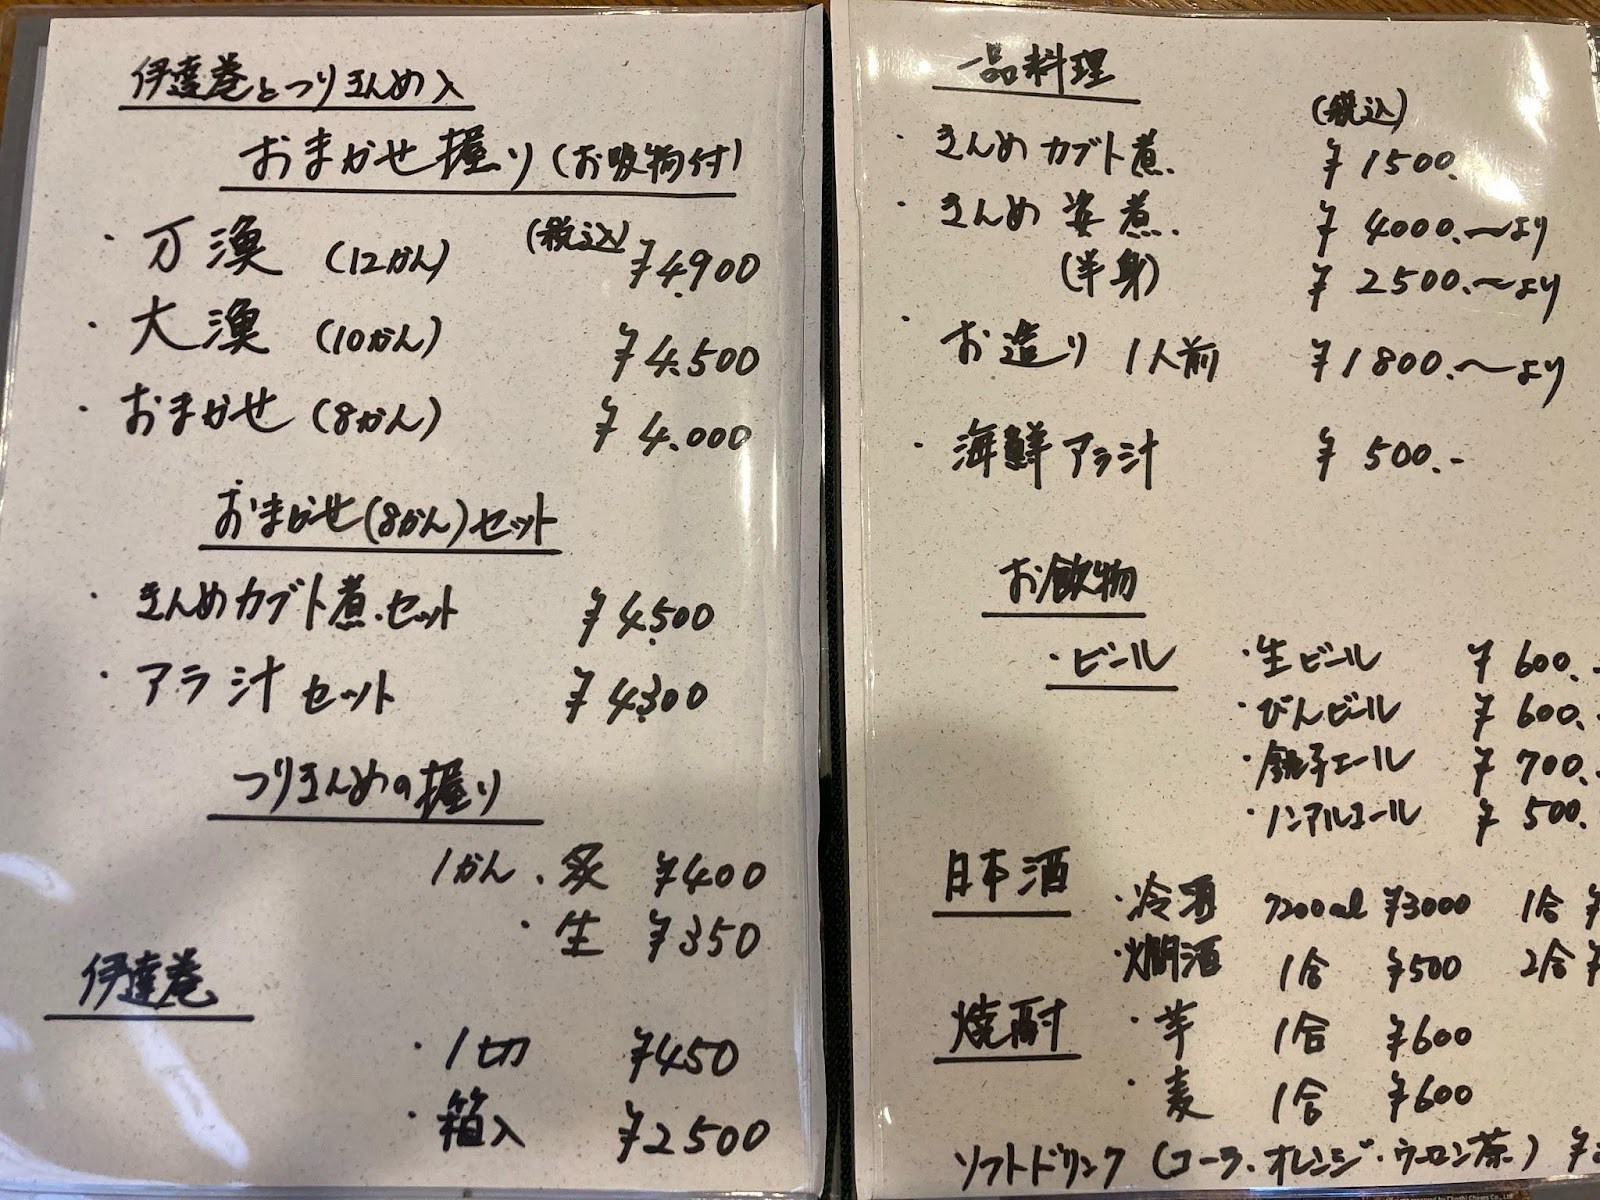 伊達巻とつりきんめ入
おまかせ握り(お吸物付)
・万漁 (12かん) (税込) ¥4,900
・大漁 (10かん) ¥4,500
・おまかせ (8かん) ¥4,000
おまかせ(8かん)セット
・きんめカブト煮・セット ¥4,500
・アラ汁セット ¥4,300
つりきんめの握り
1かん・炙 ¥400
・生 ¥350
伊達巻
・1切 ¥450
・箱入 ¥2500
一品料理
(税込)
・きんめカブト煮. ¥1500.
・きんめ 姿煮. ¥4000.〜より
(半身) ¥2500.〜より
・お造り 1人前 ¥1800.〜より
・海鮮アラ汁 ¥500.-
お飲物
・ビール ・生ビール ¥600.-
・びんビール ¥600.-
・銚子エール ¥700.
・ノンアルコール ¥500.
日本酒 ・冷酒 7200ml ¥3000 1合 ¥
・燗酒 1合 ¥500 2合 ¥
焼酎 ・芋 1合 ¥600
・麦 1合 ¥600
ソフトドリンク (コーラ・オレンジ・ウーロン茶) ¥